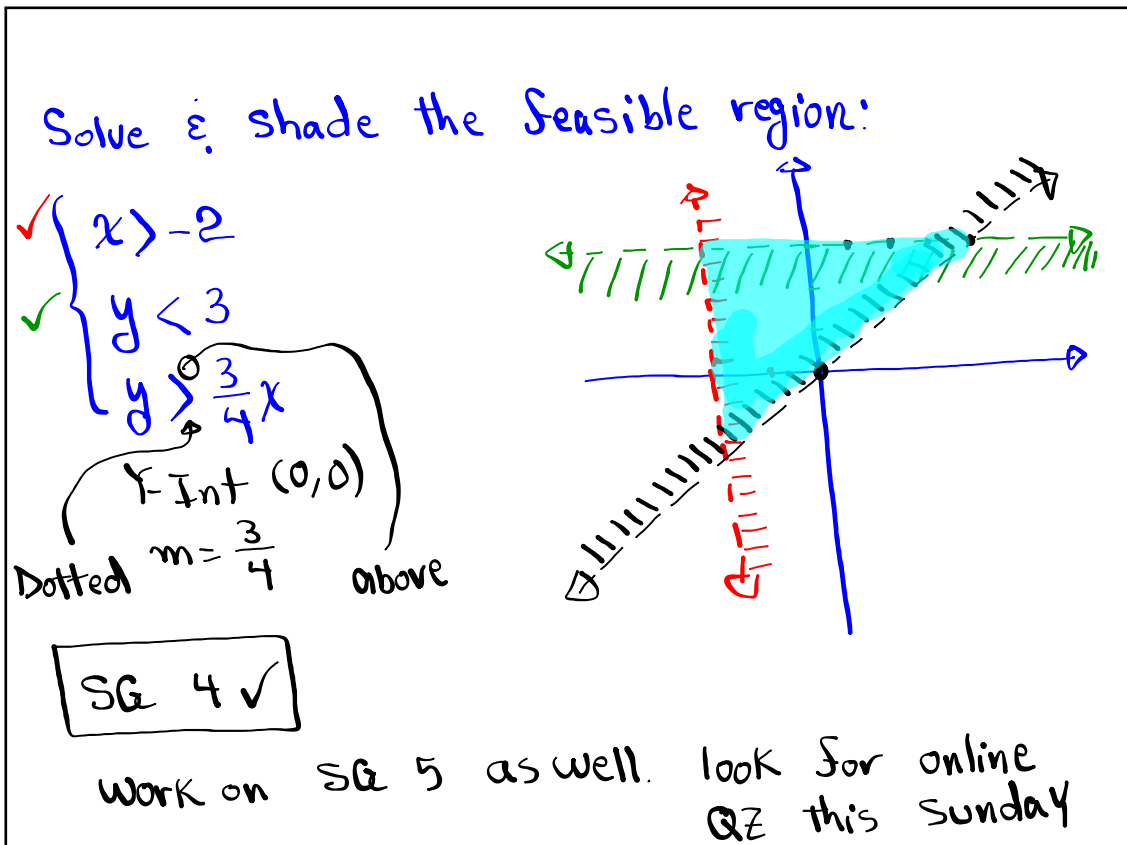 Solve & shade the feasible region:
✓ x > -2
✓ y < 3
y > 3/4 x
Y-Int (0,0)
m = 3/4
Dotted
above
SG 4 ✓
work on SG 5 as well. look for online
QZ this Sunday